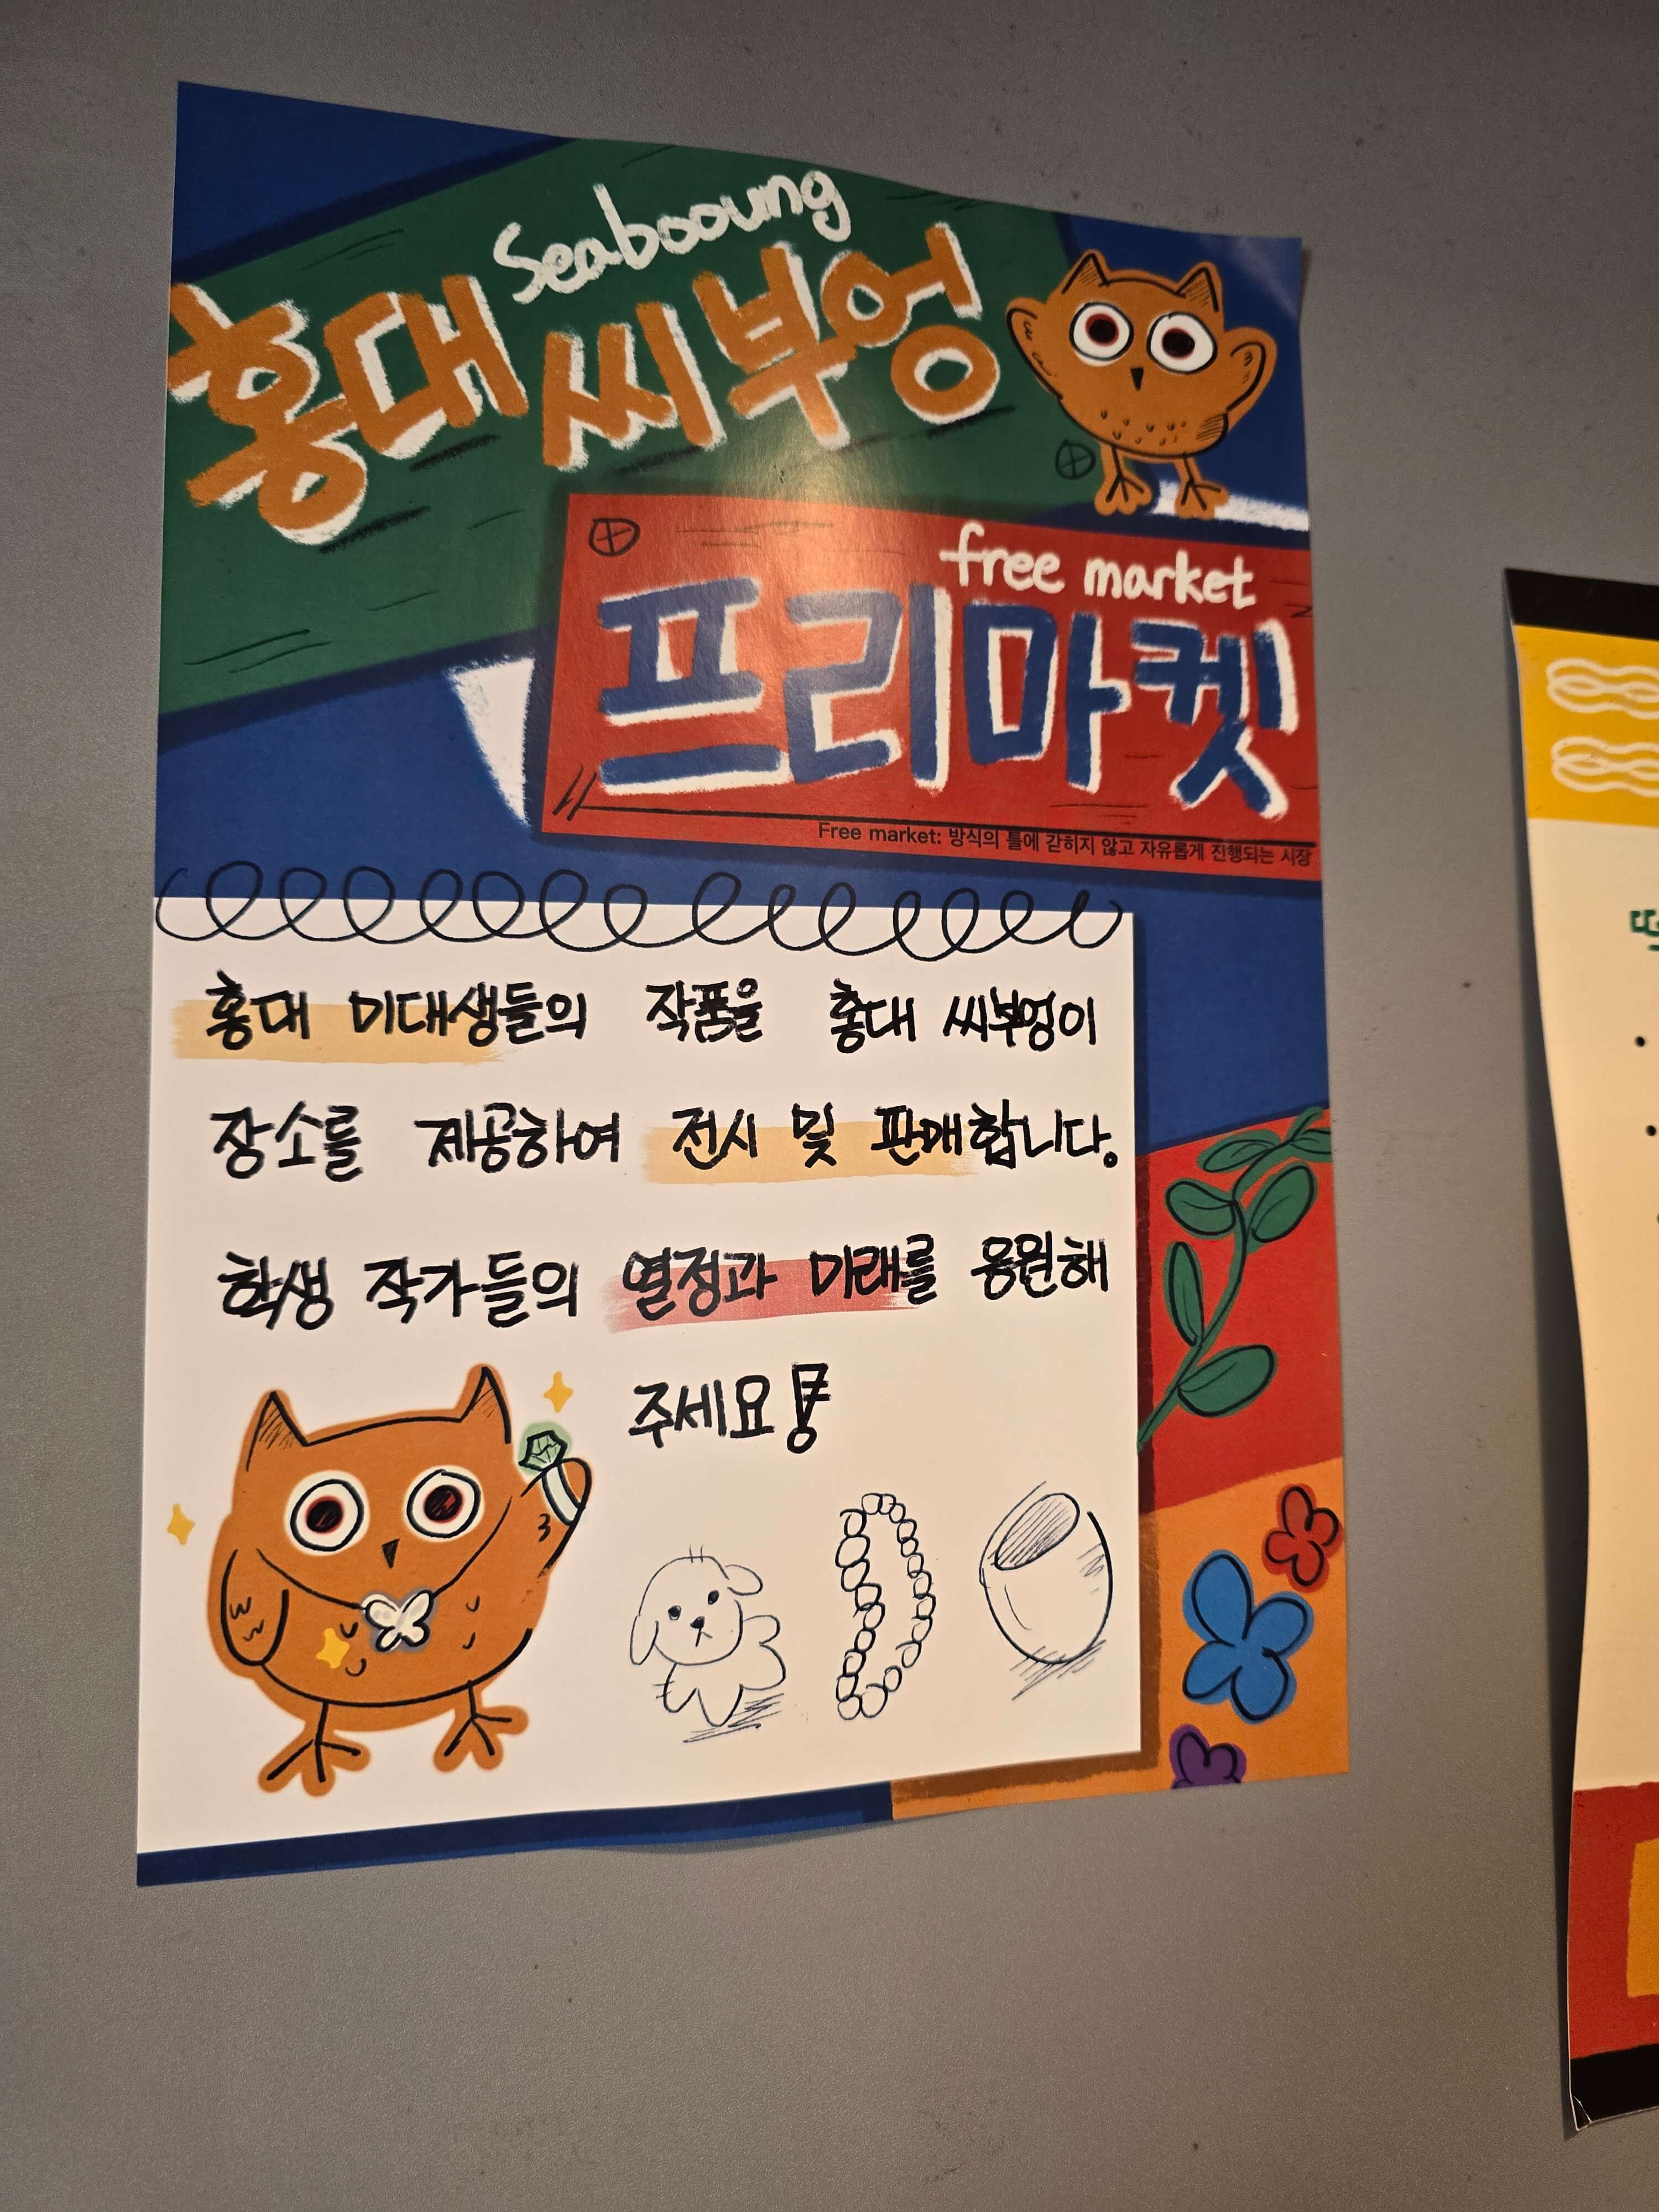 Seabooung
홍대 씨부엉
free market
프리마켓
Free market: 방식의 틀에 갇히지 않고 자유롭게 진행되는 시장
홍대 미대생들의 작품을 홍대 씨부엉이
장소를 제공하여 전시 및 판매합니다.
학생 작가들의 열정과 미래를 응원해
주세요!